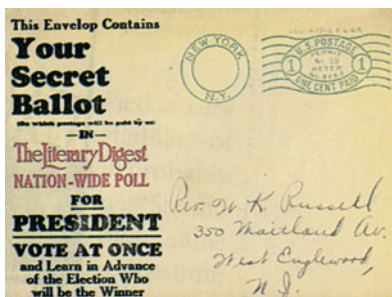 This Envelop Contains
Your
Secret
Ballot
(On which postage will be paid by us)
—IN—
The Literary Digest
NATION-WIDE POLL
FOR
PRESIDENT
VOTE AT ONCE
and Learn in Advance
of the Election Who
will be the Winner
NEW YORK
N.Y.
U.S. POSTAGE
1
PERMIT
METER
1
ONE CENT PAID
Rev. W. K. Russell
350 Maitland Av.
West Englewood,
N. J.